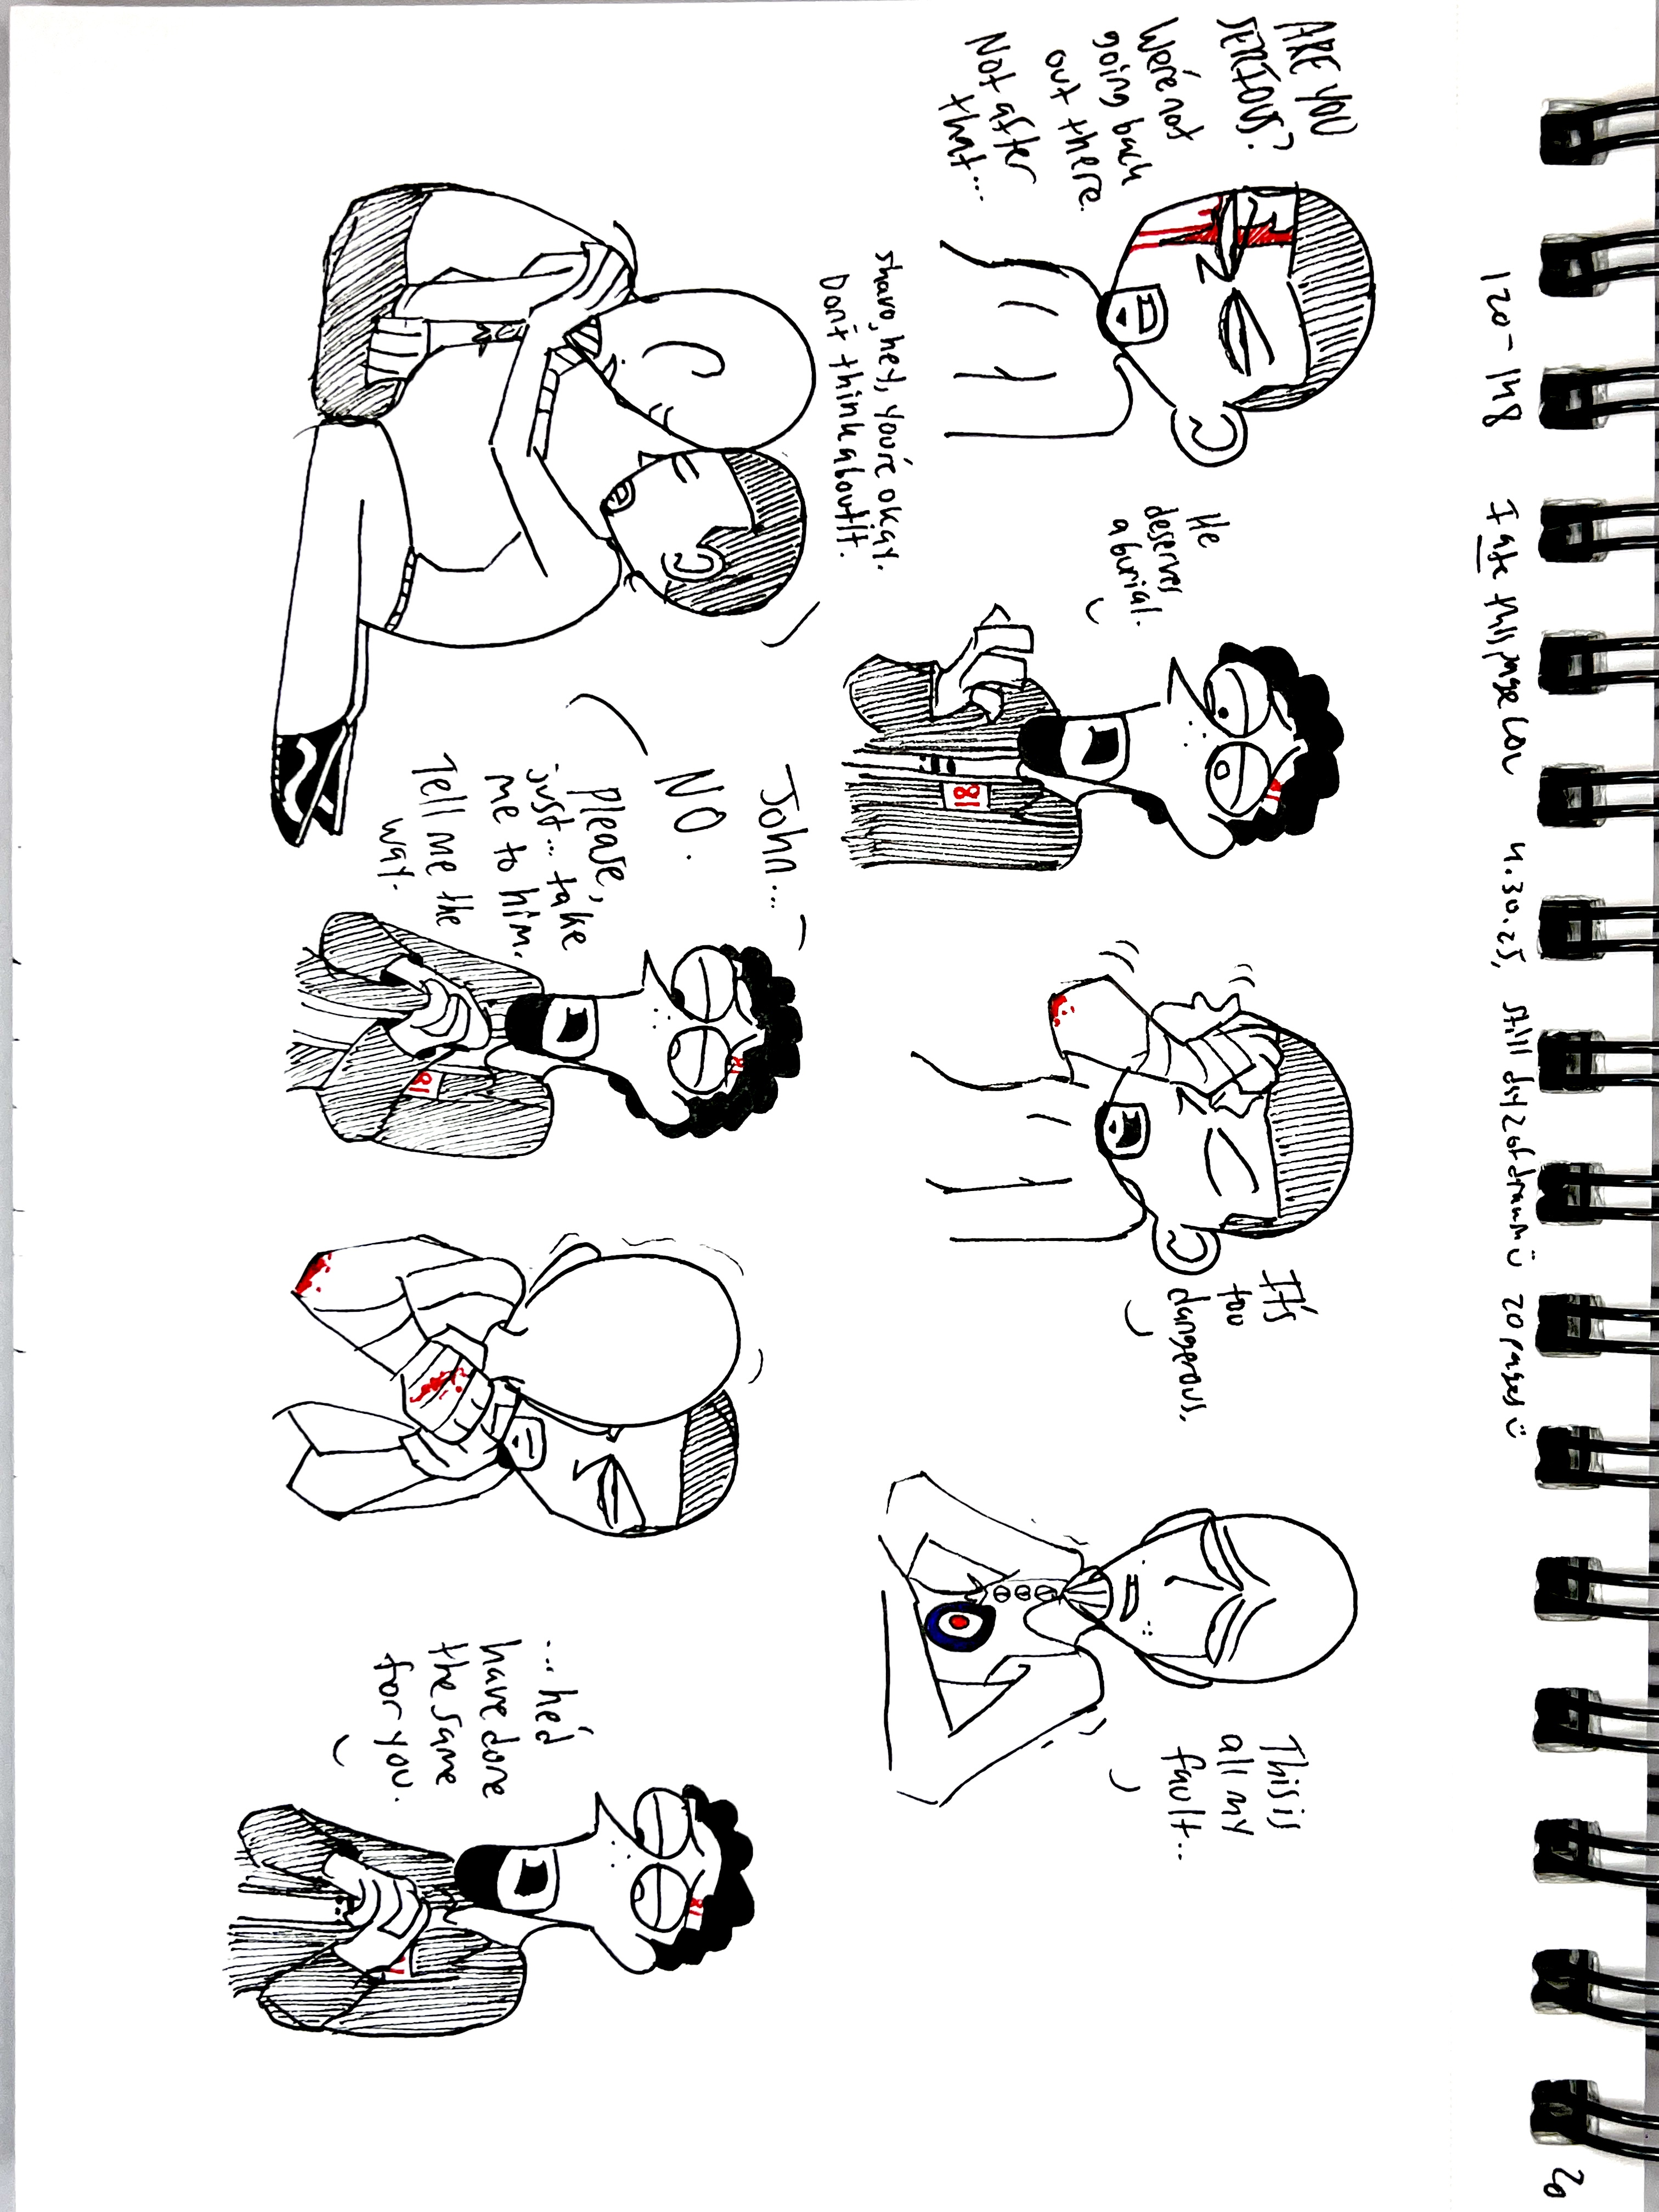 20
120-148 I ate this page LOL 4.30.25, still day 2 of drawin :) 20 pages :)
ARE YOU
SERIOUS?
We're not
going back
out there.
Not after
that...
He
deserves
a burial.
81
It's
too
dangerous.
This is
all my
fault..
shavo, hey, you're okay.
Don't think about it.
John...
NO.
Please,
just... take
me to him.
Tell me the
way.
81
81
...he'd
have done
the same
for you.
81